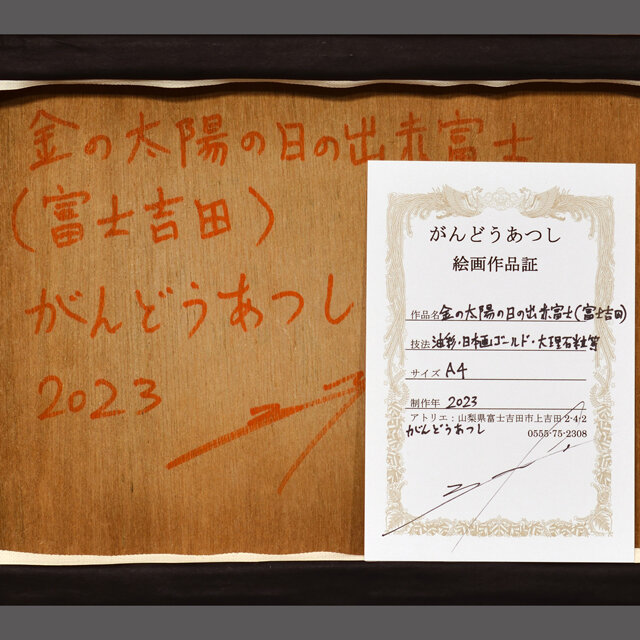 金の太陽の日の出赤富士
(富士吉田)
がんどうあつし
2023
がんどうあつし
絵画作品証
作品名 金の太陽の日の出赤富士(富士吉田)
技法 油彩・日本画ゴールド・大理石粒等
サイズ A4
制作年 2023
アトリエ：山梨県富士吉田市上吉田2-4-2
がんどうあつし 0555-75-2308